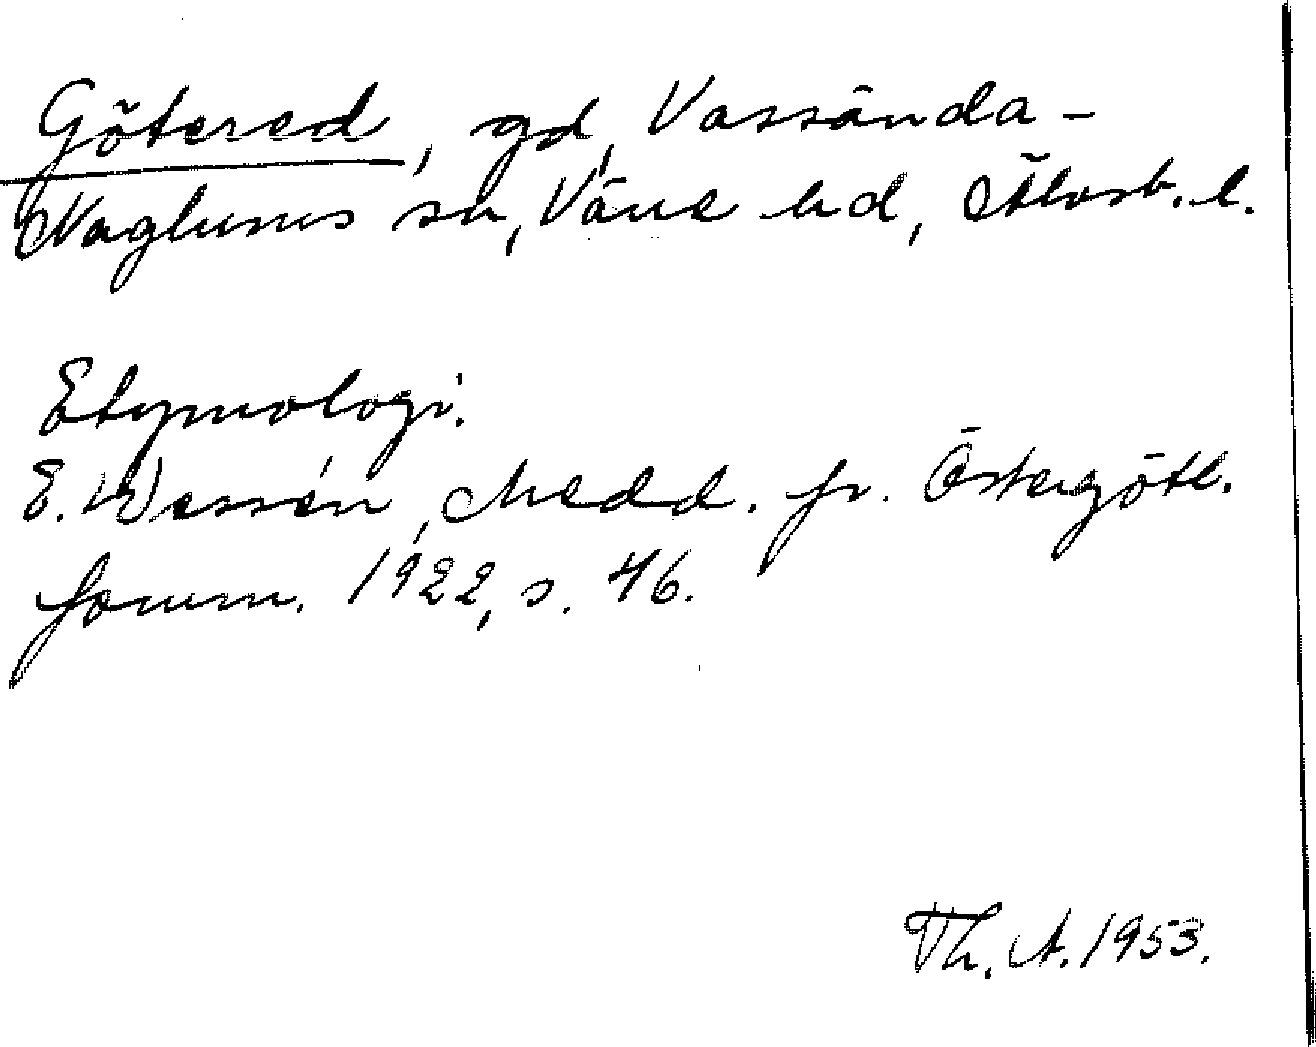 Götered, gd, Vassända-
Naglums sn, Väne hd, Älvsb. l.
Etymologi.
E. Wessén, Medd. fr. Östergötl.
fornm. 1922, s. 46.
Th. A. 1953.